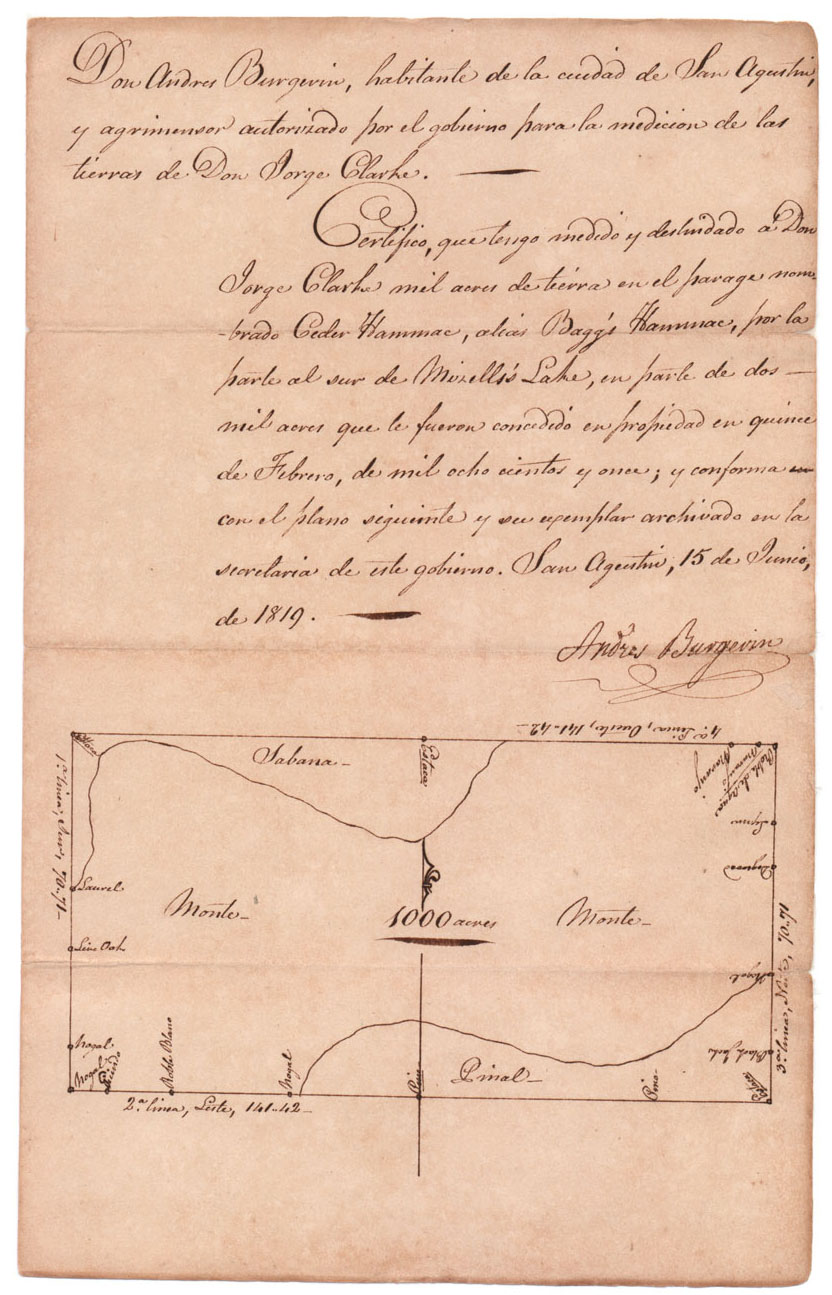 Don Andres Burgevin, habitante de la ciudad de San Agustin,
y agrimensor autorizado por el gobierno para la medicion de las
tierras de Don Jorge Clarke.
Certifico, que tengo medido y deslindado á Don
Jorge Clarke mil acres de tierra en el parage nom-
-brado Ceder Hammac, alias Bagg's Hammac, por la
parte al sur de Mizells's Lake, en parte de dos
mil acres que le fueron concedido en propiedad en quince
de Febrero, de mil ocho cientos y once; y conforma
con el plano siguiente y su exemplar archivado en la
secretaria de este gobierno. San Agustin, 15 de Junio,
de 1819.
Andres Burgevin
4.a linea, Oueste, 141-42
Sabana
Estaca
Roble de Aguas
Naranjo
Naranjo
1.a linea, Sur, 70-71
Laurel
Dogwood
Monte
1000 acres
Monte
Live Oak
Nogal
3.a linea, Norte, 70-71
Nogal
Roble Blano
Black Jack
Nogal
Nogal
Pino
Pinal
Pino
Estaca
2.a linea, Leste, 141-42